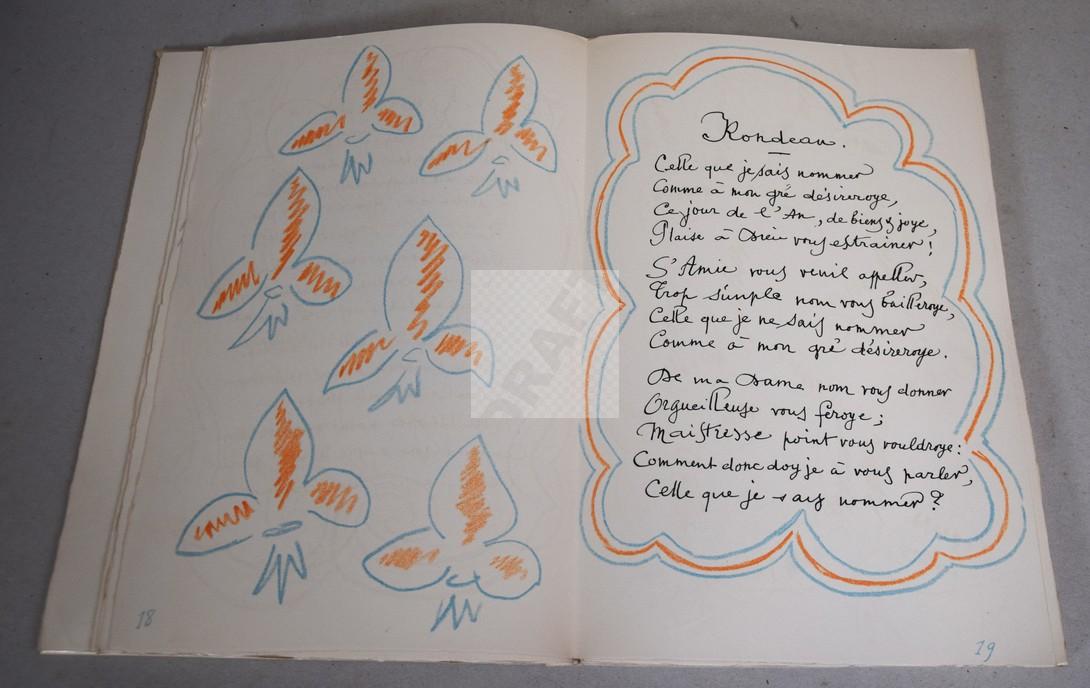 18
Rondeau.
Celle que je sais nommer
Comme à mon gré désireroye,
Ce jour de l'An, de biens & joye,
Plaise à Dieu vous estrainer!
S'Amie vous venil appeller,
Trop simple nom vous bailleroye,
Celle que je ne sais nommer
Comme à mon gré désireroye.
De ma Dame nom vous donner
Orgueilleuse vous feroye;
Maistresse point vous vouldroye:
Comment donc doy je à vous parler,
Celle que je sais nommer?
19
DRAFT